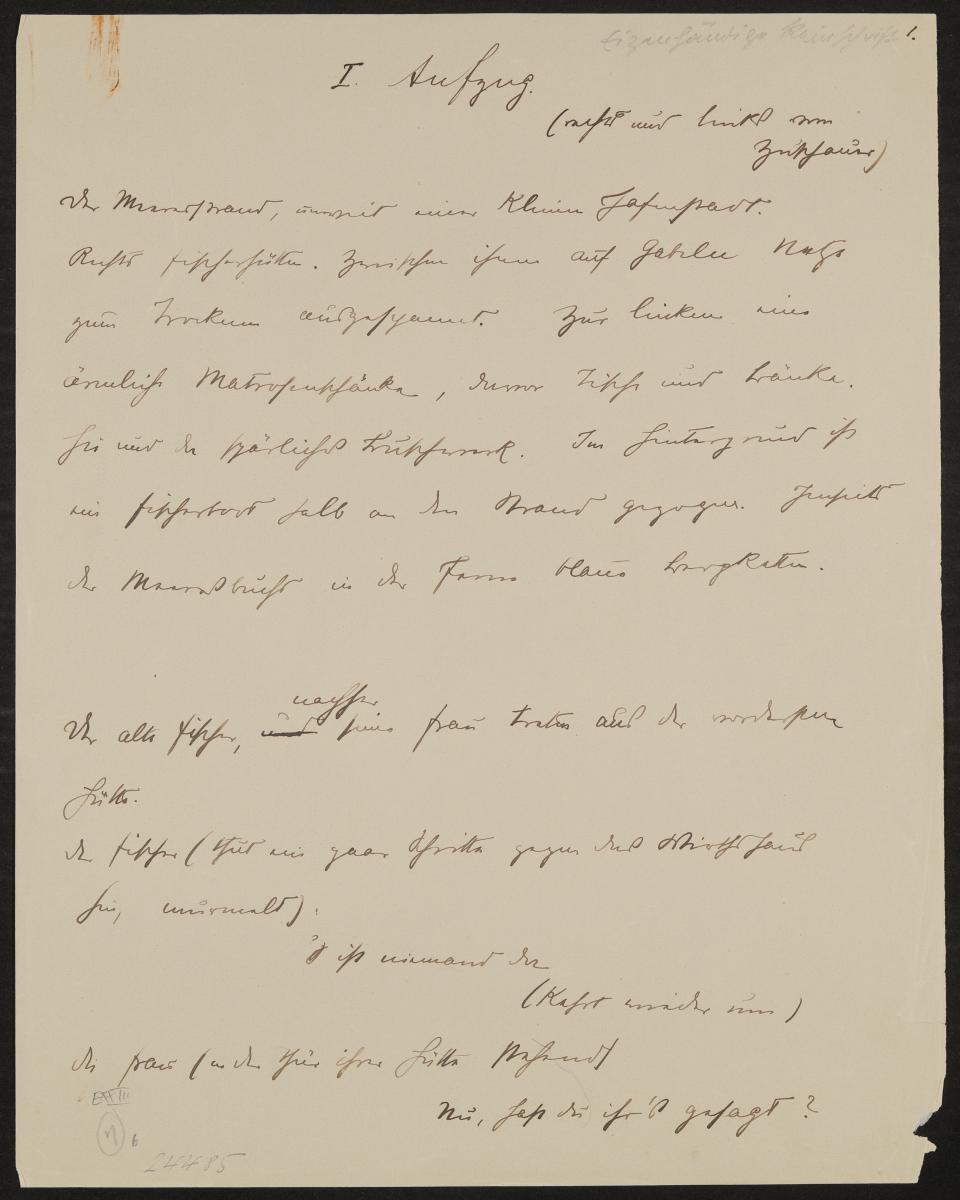 Eigenhändige Reinschrift 1.
I. Aufzug.
(rechts und links vom
Zuschauer)
Der Meeresstrand, unweit einer kleinen Hafenstadt.
Rechts Fischerhütten. Zwischen ihnen auf Gabeln Netze
zum Trocknen ausgespannt. Zur linken eine
ärmliche Matrosenschänke, davor Tische und Bänke.
Hie und da spärliches Buschwerk. Im Hintergrund ist
ein Fischerboot halb an den Strand gezogen. Jenseits
der Meeresbucht in der Ferne blaue Bergketten.
nachher
Der alte Fischer, und seine Frau treten aus der vordersten
Hütte.
der Fischer (thut ein paar Schritte gegen das Wirthshaus
hin, murmelt):
's ist niemand da
(Kehrt wieder um)
die Frau (in der Thür ihrer Hütte stehend)
Nu, hast du ihr's gesagt?
6
24485